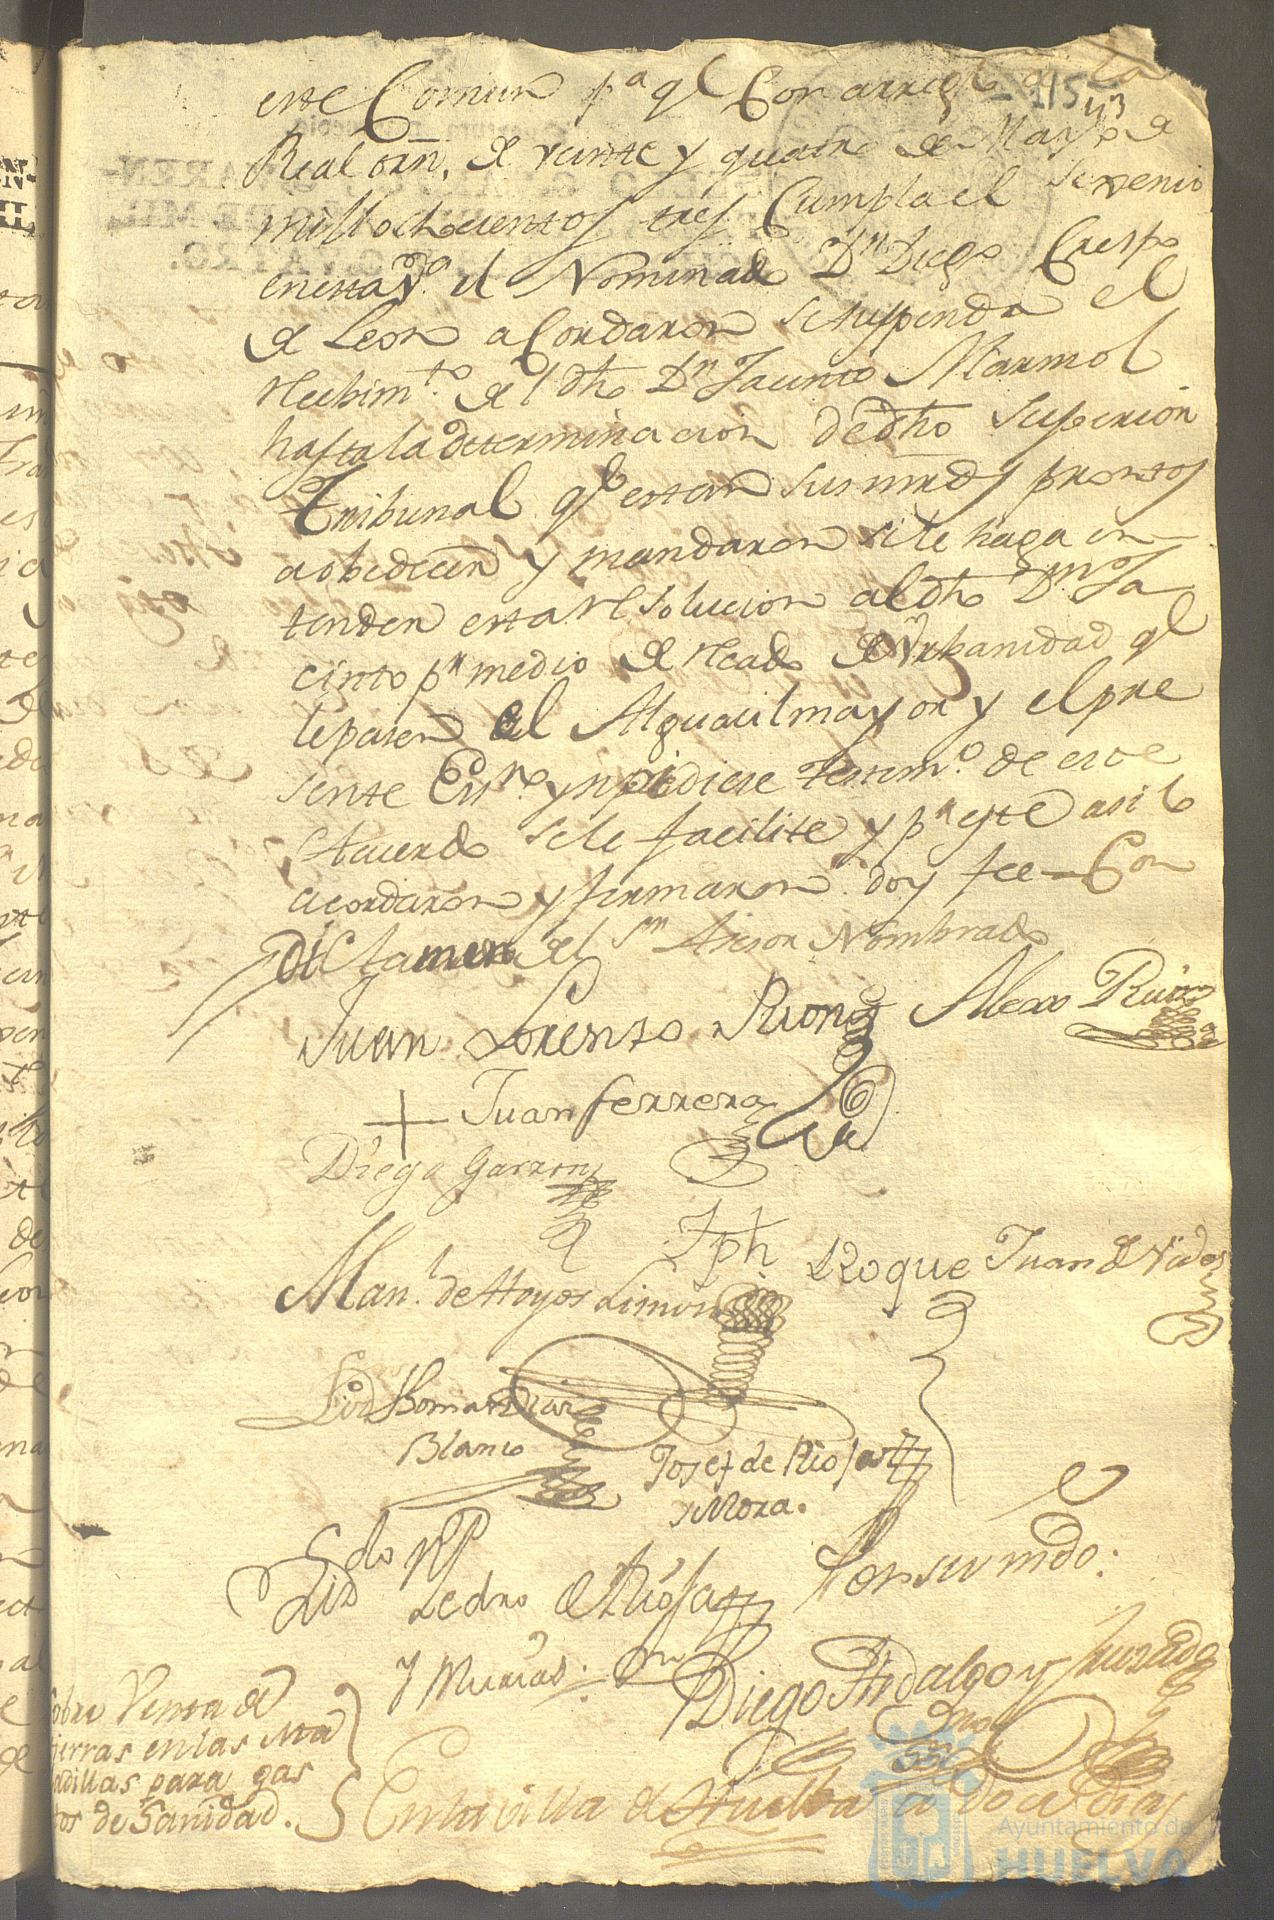 este Comun pª ql Con arregl.º a la
Real orñ. de veinte y quatro de Mayo de
mill ochocientos tres Cumpla el Sexenio
en esta Vª el Nominado Dn Diego Crespo
de Leon acordaron se suspenda el
recibimto. del dho Dn Jacinto Marmol
hasta la determinacion de dho Superior
Tribunal ql estan sus mrds prontos
a obedecer y mandaron se le haga en-
tender esta resolucion al dho Dn Ja
cinto pr medio de recado de Urbanidad ql
le pasen el Alguacil mayor y el pre
sente Essno. y si pidiese testimo. de este
Acuerdo se le facilite y pr este asi lo
acordaron y firmaron doy fee = Con
dictamen del Sr Asesor Nombrado
Juan Lorenzo Alexo Ruiz
Juan ferrera
Diego Garzon
Jph Roque Juan de
Manl. de Hoyos Limon
Thomas Diaz
Blanco
Josef de Rioja
y Mora.
Ldo
Pedro de Rioja
y
Diego Hidalgo y Jurado
Sobre Venta de
tierras en las Ma
adillas para gas
tos de Sanidad.
En la villa de Huelva a doce dias
Ayuntamiento de
HUELVA